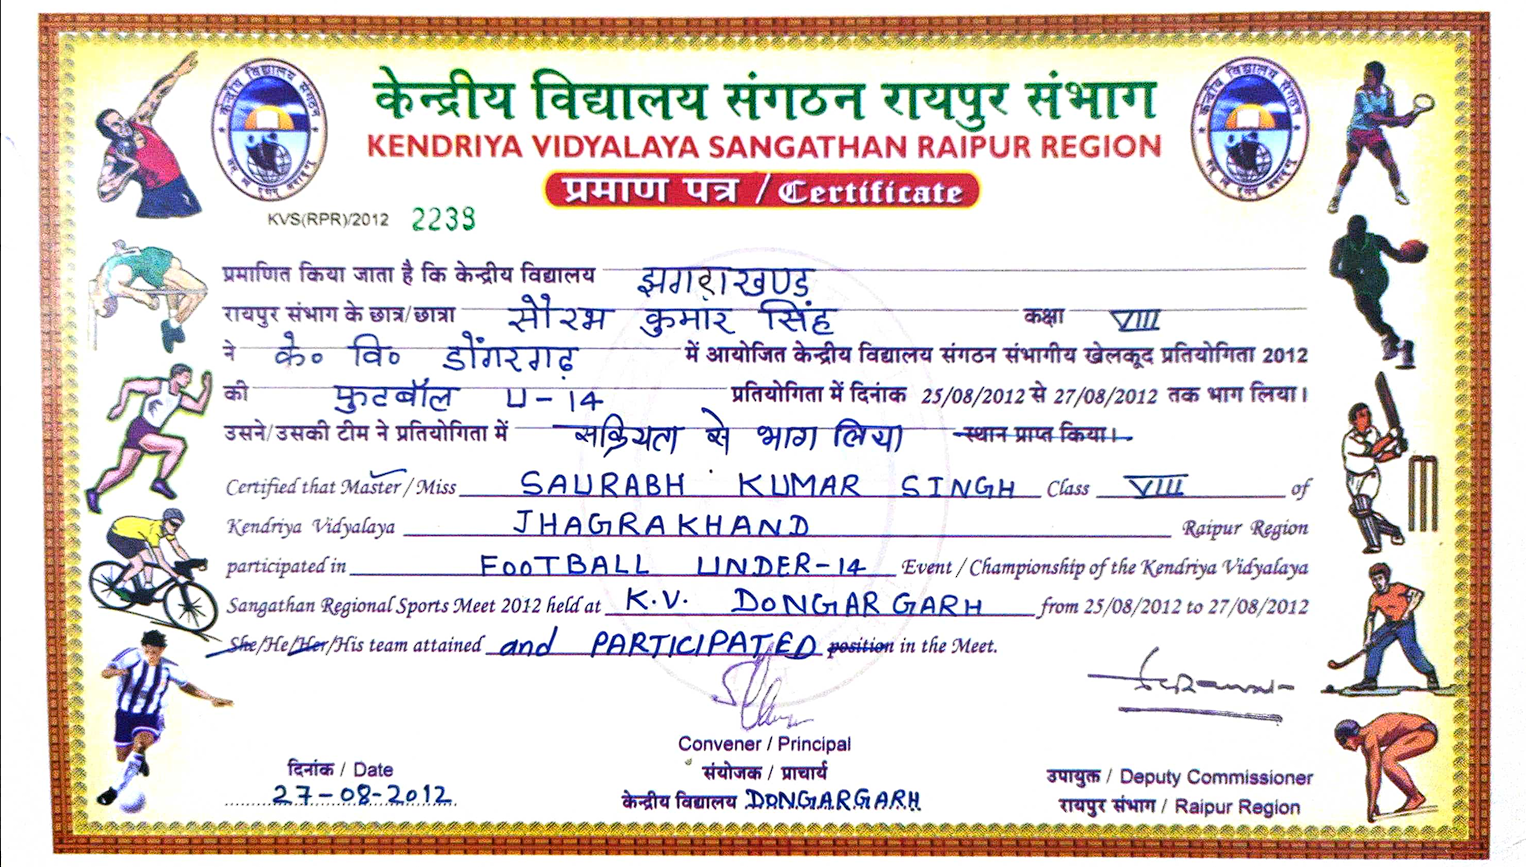 केन्द्रीय विद्यालय संगठन रायपुर संभाग
KENDRIYA VIDYALAYA SANGATHAN RAIPUR REGION
प्रमाण पत्र / Certificate
KVS(RPR)/2012 2239
प्रमाणित किया जाता है कि केन्द्रीय विद्यालय झगराखण्ड
रायपुर संभाग के छात्र/छात्रा सौरभ कुमार सिंह कक्षा VIII
ने के० वि० डोंगरगढ़ में आयोजित केन्द्रीय विद्यालय संगठन संभागीय खेलकूद प्रतियोगिता 2012
की फुटबॉल U-14 प्रतियोगिता में दिनांक 25/08/2012 से 27/08/2012 तक भाग लिया।
उसने/उसकी टीम ने प्रतियोगिता में सक्रियता से भाग लिया स्थान प्राप्त किया।
Certified that Master/Miss SAURABH KUMAR SINGH Class VIII of
Kendriya Vidyalaya JHAGRAKHAND Raipur Region
participated in FOOTBALL UNDER-14 Event / Championship of the Kendriya Vidyalaya
Sangathan Regional Sports Meet 2012 held at K.V. DONGARGARH from 25/08/2012 to 27/08/2012
She/He/Her/His team attained and PARTICIPATED position in the Meet.
Convener / Principal
दिनांक / Date संयोजक / प्राचार्य उपायुक्त / Deputy Commissioner
27-08-2012 केन्द्रीय विद्यालय DONGARGARH रायपुर संभाग / Raipur Region